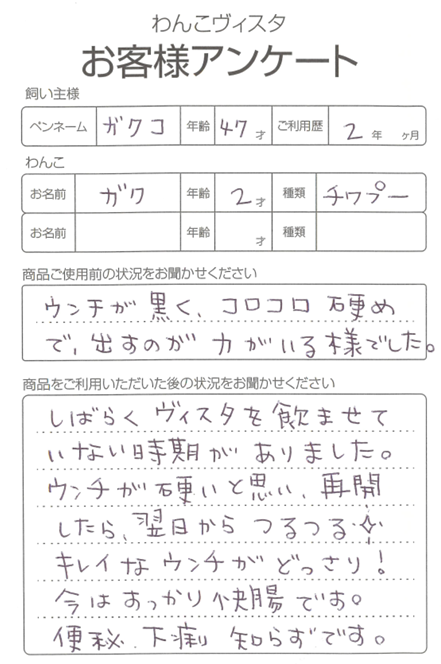 わんこヴィスタ
お客様アンケート
飼い主様
ペンネーム ガクコ 年齢 47才 ご利用歴 2年 ヶ月
わんこ
お名前 ガク 年齢 2才 種類 チワプー
お名前 年齢 才 種類
商品ご使用前の状況をお聞かせください
ウンチが黒く、コロコロ硬め
で、出すのが力がいる様でした。
商品をご利用いただいた後の状況をお聞かせください
しばらくヴィスタを飲ませて
いない時期がありました。
ウンチが硬いと思い、再開
したら、翌日からつるつる✧
キレイなウンチがどっさり!
今はすっかり快腸です。
便秘、下痢知らずです。